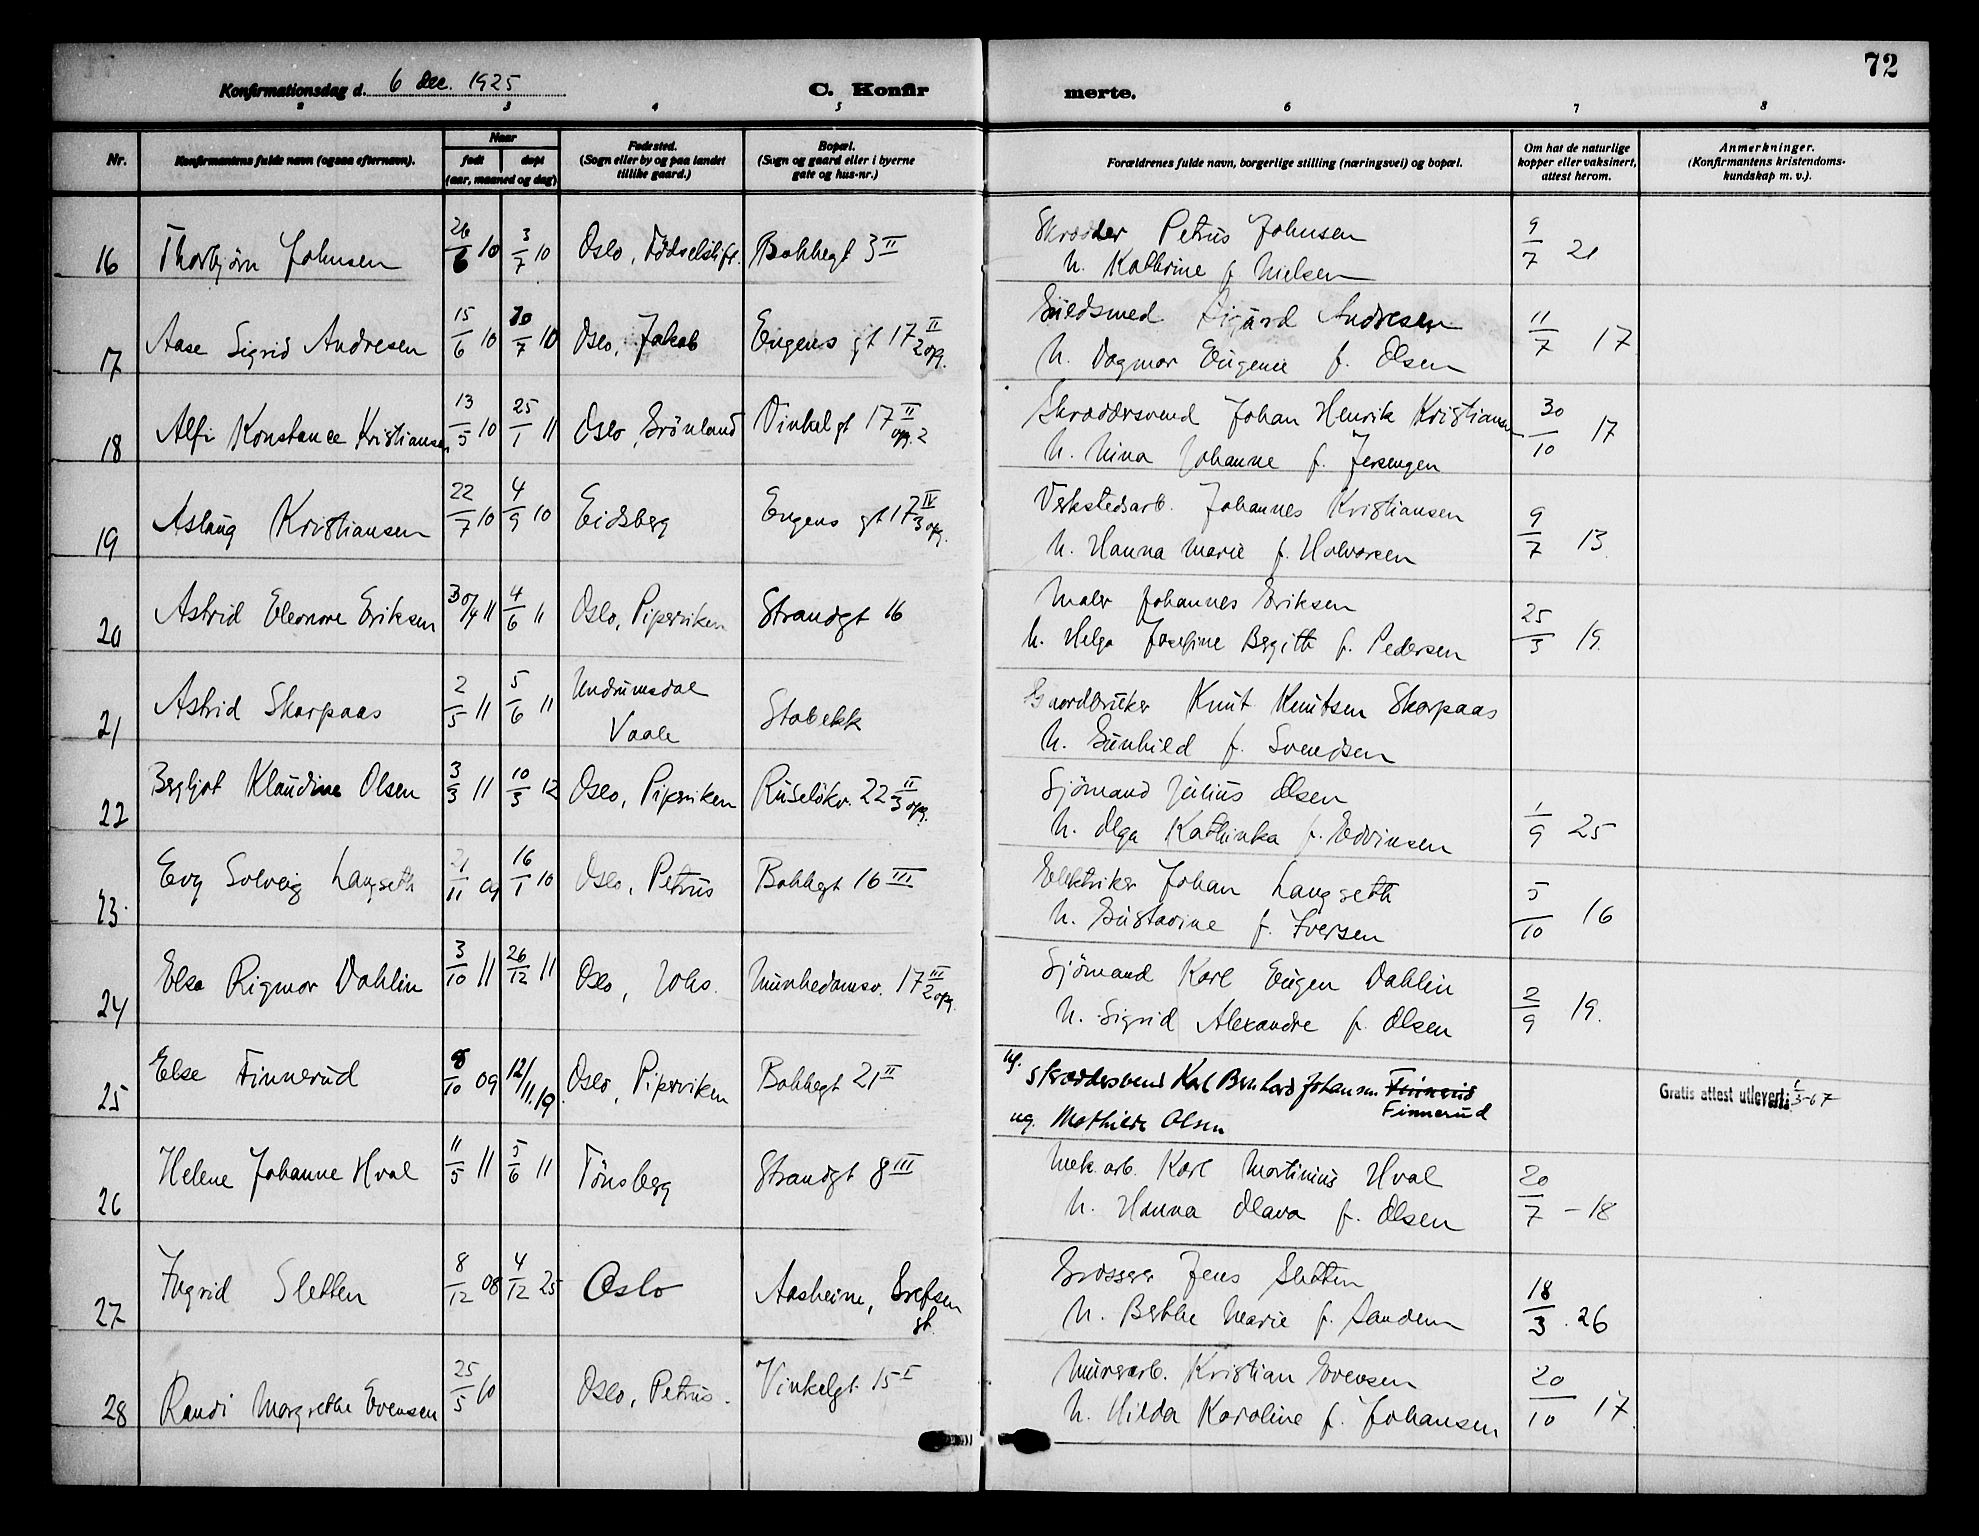 72
Konfirmationsdag d. 6 dec. 1925
C. Konfir merte.
2 3 4 5 6 7 8
Nr.
Konfirmantens fulde navn (ogsaa efternavn).
Naar
født døpt
(aar, maaned og dag)
Fødested.
(Sogn eller by og paa landet
tillike gaard.)
Bopæl.
(Sogn og gaard eller i byerne
gate og hus-nr.)
Forældrenes fulde navn, borgerlige stilling (næringsvei) og bopæl.
Om hat de naturlige
kopper eller vaksinert,
attest herom.
Anmerkninger.
(Konfirmantens kristendoms-
kundskap m. v.).
16 Thorbjørn Johnsen 26/6 10 3/7 10 Oslo, Fødselstift. Bakkegt 3 II
Skræder Petrus Johnsen
h. Kathrine f. Nielsen
9/7 21
17 Aase Sigrid Andresen 15/6 10 /7 10 Oslo, Jakob Engens gt 17 II 2 opg.
Guldsmed Sigurd Andresen
h. Dagmar Eugenie f. Olsen
11/7 17
18 Alfi Konstance Kristiansen 13/5 10 25/1 11 Oslo, Grönland Vinkelgt 17 II opg. 2
Skræddersvend Johan Henrik Kristiansen
h. Nina Johanne f.
30/10 17
19 Aslaug Kristiansen 22/7 10 4/9 10 Eidsberg Engens gt 17 IV 3 opg.
Verkstedsarb. Johannes Kristiansen
h. Hanna Marie f. Halvorsen
9/7 13
20 Astrid Eleonore Eriksen 30/4 11 4/6 11 Oslo, Piperviken Strandgt 16
Maler Johannes Eriksen
h. Helga Josefine Bergith f. Pedersen
25/3 19.
21 Astrid Skarpaas 2/5 11 5/6 11 Undrumsdal
Vaale
Stabekk
Gaardbruker Knut Knutsen Skarpaas
h. Gunhild f. Svendsen
22 Bergljot Klaudine Olsen 3/3 11 10/3 12 Oslo, Piperviken Ruseløkv. 22 II 3 opg.
Sjömand Julius Olsen
h. Olga Kathinka f. Edvinsen
1/9 25
23 Evy Solveig Langseth 21/11 09 16/1 10 Oslo, Petrus Bakkegt 16 III
Elektriker Johan Langseth
h. Gustavine f. Iversen
5/10 16
24 Elsa Rigmor Dahlin 3/10 11 26/12 11 Oslo, Johs. Munkedamsv. 17 III 2 opg.
Sjömand Karl Eugen Dahlin
h. Sigrid Alexandre f. Olsen
2/9 19.
25 Else Finnerud 8/10 09 12/11.19. Oslo, Piperviken Bakkegt 21 II
uf. skræddersvend Karl Bernhard Johansen Finnerud
Finnerud
ug. Mathilde Olsen
Gratis attest utlevert: 1/3-67
26 Helene Johanne Hval 11/5 11 5/6 11 Tönsberg Strandgt 8 III
Mek. arb. Karl Martinius Hval
h. Hanna Olava f. Olsen
20/7 - 18
27 Ingrid Sletten 8/12 08 4/12 25 Oslo Aasheim, Grefsen
st.
Grosserer Jens Sletten
h. Berthe Marie f. Sandem
18/3. 26
28 Randi Margrethe Evensen 25/5 10 Oslo, Petrus. Vinkelgt. 15 I
Murerarb. Kristian Evensen
h. Hilda Karoline f. Johansen
20/10 17.